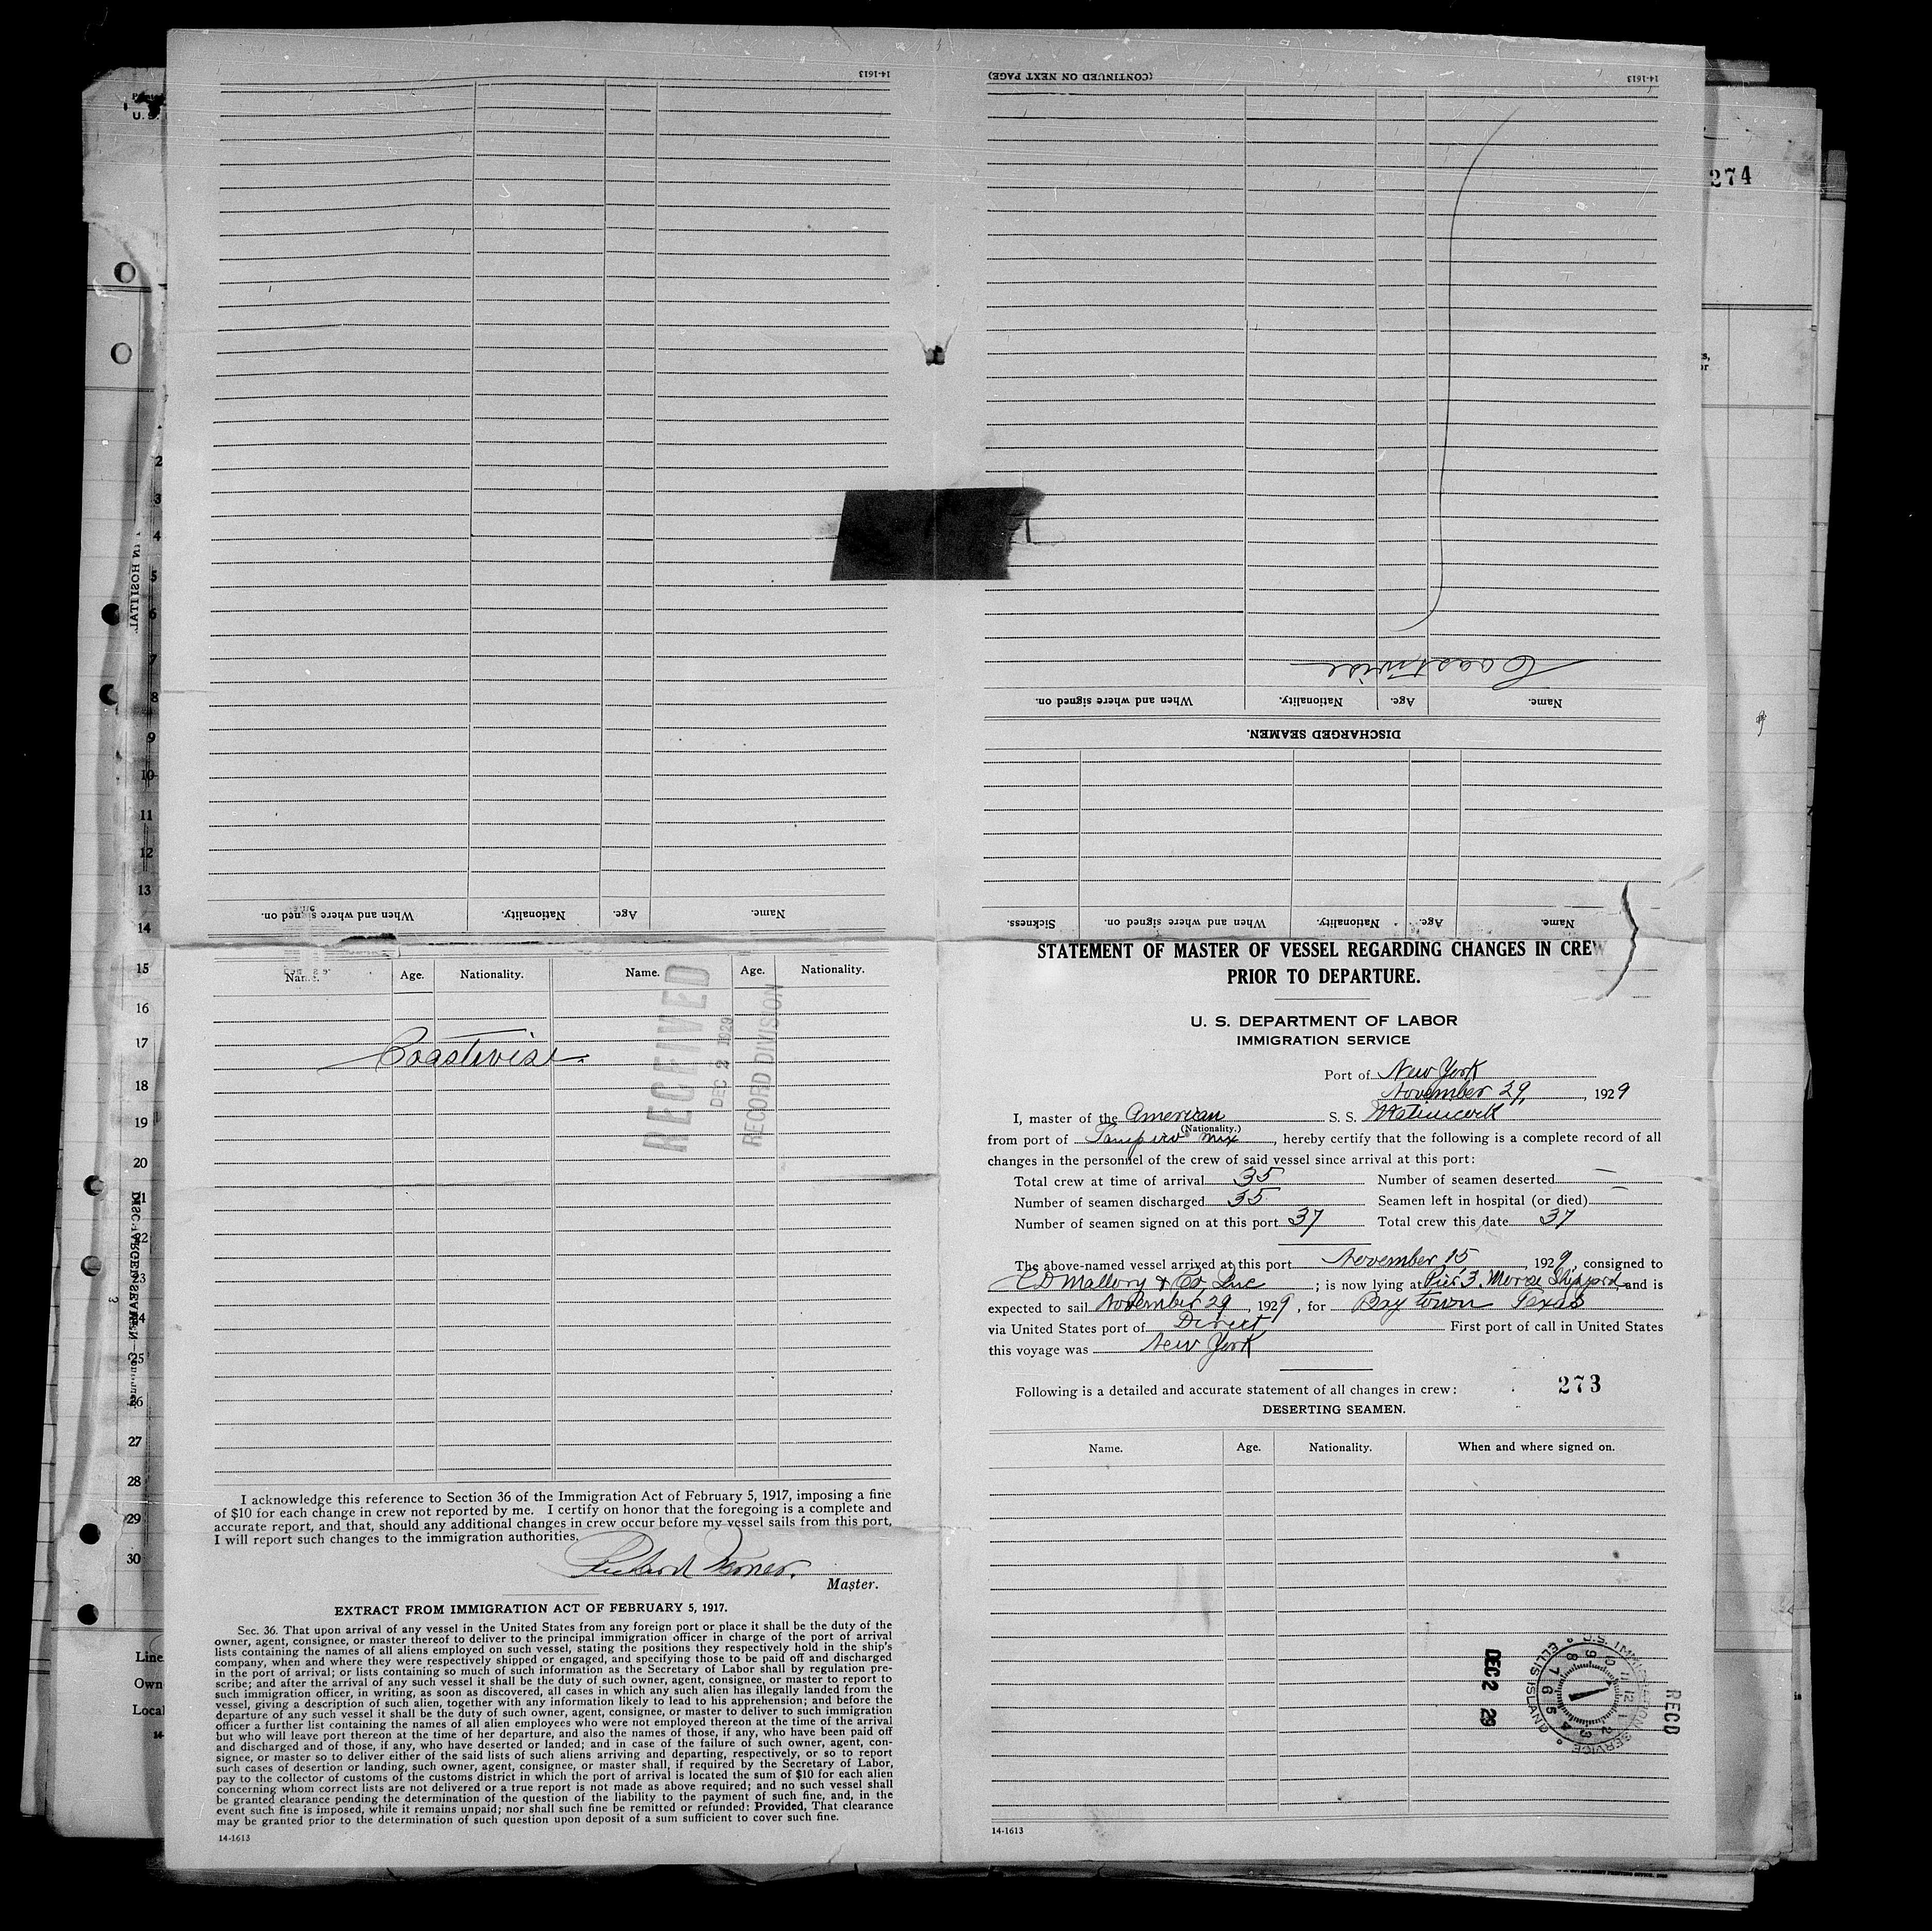 STATEMENT OF MASTER OF VESSEL REGARDING CHANGES IN CREW
PRIOR TO DEPARTURE.
U. S. DEPARTMENT OF LABOR
IMMIGRATION SERVICE
Port of New York
November 29, 1929
I, master of the American S. S. Matinicock
(Nationality.)
from port of Tampico Mex, hereby certify that the following is a complete record of all
changes in the personnel of the crew of said vessel since arrival at this port:
Total crew at time of arrival 35 Number of seamen deserted —
Number of seamen discharged 35 Seamen left in hospital (or died) —
Number of seamen signed on at this port 37 Total crew this date 37
The above-named vessel arrived at this port November 15, 1929, consigned to
C D Mallory & Co, Inc; is now lying at Pier 3, Morse Shipyard, and is
expected to sail November 29, 1929, for Baytown Texas
via United States port of Direct First port of call in United States
this voyage was New York
Following is a detailed and accurate statement of all changes in crew:
273
DESERTING SEAMEN.
Name. Age. Nationality. When and where signed on.
DEC 2 29
U.S. IMMIGRATION SERVICE
ELLIS ISLAND
RECD
14-1613
Name. Age. Nationality. When and where signed on. Sickness.
DISCHARGED SEAMEN.
Name. Age. Nationality. When and where signed on.
Coastwise
(CONTINUED ON NEXT PAGE)
14-1613
Name. Age. Nationality. When and where signed on.
14-1613
Name. Age. Nationality. Name. Age. Nationality.
Coastwise
RECEIVED
DEC 2 1929
RECORD DIVISION
I acknowledge this reference to Section 36 of the Immigration Act of February 5, 1917, imposing a fine
of $10 for each change in crew not reported by me. I certify on honor that the foregoing is a complete and
accurate report, and that, should any additional changes in crew occur before my vessel sails from this port,
I will report such changes to the immigration authorities.
Richard Verner.
Master.
EXTRACT FROM IMMIGRATION ACT OF FEBRUARY 5, 1917.
Sec. 36. That upon arrival of any vessel in the United States from any foreign port or place it shall be the duty of the
owner, agent, consignee, or master thereof to deliver to the principal immigration officer in charge of the port of arrival
lists containing the names of all aliens employed on such vessel, stating the positions they respectively hold in the ship's
company, when and where they were respectively shipped or engaged, and specifying those to be paid off and discharged
in the port of arrival; or lists containing so much of such information as the Secretary of Labor shall by regulation pre-
scribe; and after the arrival of any such vessel it shall be the duty of such owner, agent, consignee, or master to report to
such immigration officer, in writing, as soon as discovered, all cases in which any such alien has illegally landed from the
vessel, giving a description of such alien, together with any information likely to lead to his apprehension; and before the
departure of any such vessel it shall be the duty of such owner, agent, consignee, or master to deliver to such immigration
officer a further list containing the names of all alien employees who were not employed thereon at the time of the arrival
but who will leave port thereon at the time of her departure, and also the names of those, if any, who have been paid off
and discharged and of those, if any, who have deserted or landed; and in case of the failure of such owner, agent, con-
signee, or master so to deliver either of the said lists of such aliens arriving and departing, respectively, or so to report
such cases of desertion or landing, such owner, agent, consignee, or master shall, if required by the Secretary of Labor,
pay to the collector of customs of the customs district in which the port of arrival is located the sum of $10 for each alien
concerning whom correct lists are not delivered or a true report is not made as above required; and no such vessel shall
be granted clearance pending the determination of the question of the liability to the payment of such fine, and, in the
event such fine is imposed, while it remains unpaid; nor shall such fine be remitted or refunded: Provided, That clearance
may be granted prior to the determination of such question upon deposit of a sum sufficient to cover such fine.
14-1613
274
2
3
4
5
6
7
8
9
10
11
12
13
14
15
16
17
18
19
20
21
22
23
24
25
26
27
28
29
30